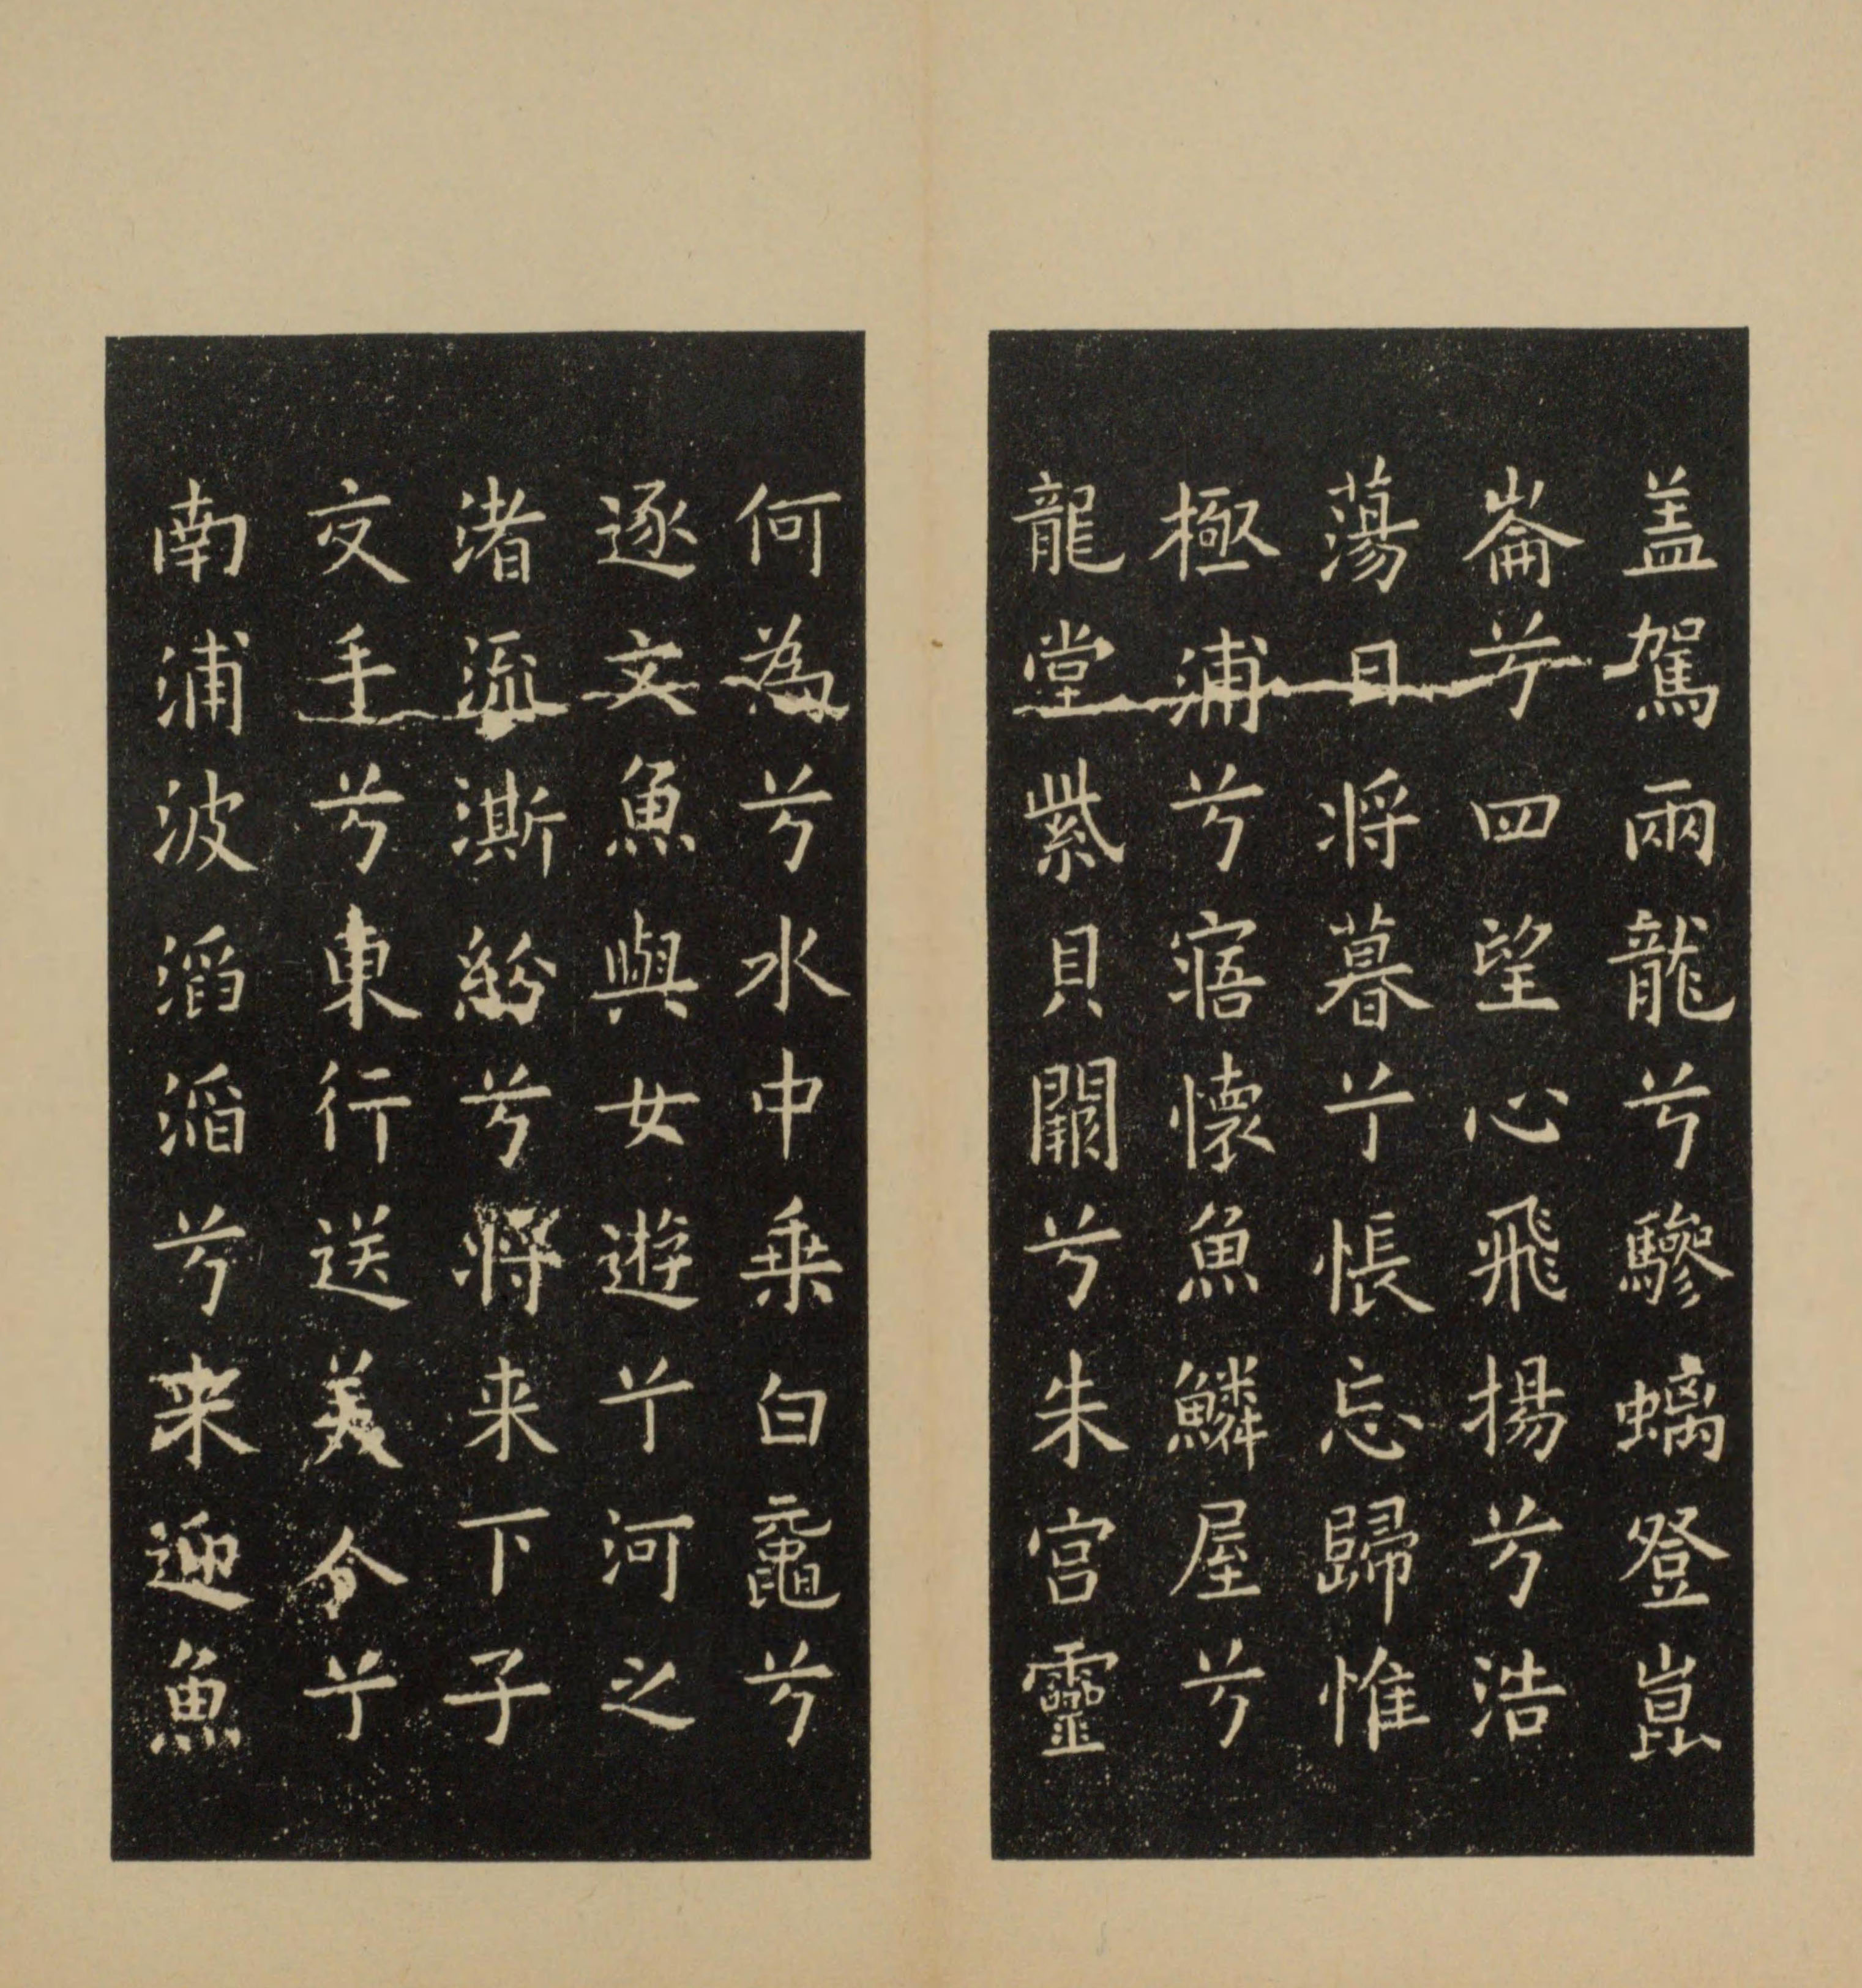 盖駕兩龍兮驂螭登崑
崙兮四望心飛揚兮浩
蕩日將暮兮悵忘歸惟
極浦兮寤懷魚鱗屋兮
龍堂紫貝闕兮朱宮靈
何為兮水中乗白黿兮
逐文魚與女遊兮河之
渚流澌紛兮將来下子
交手兮東行送美人兮
南浦波滔滔兮来迎魚